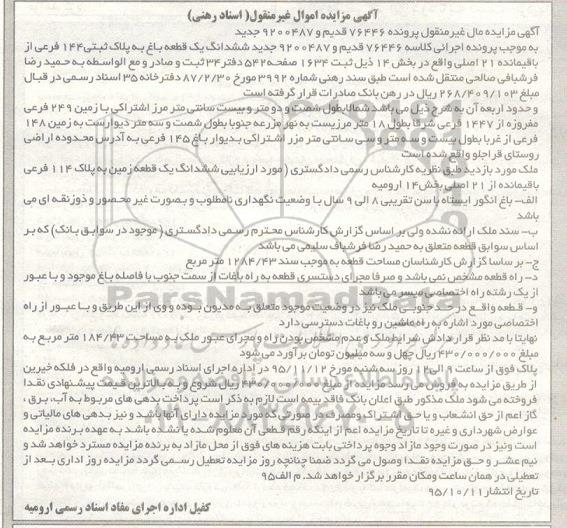 آگهی مزایده اموال غیرمنقول( اسناد رهنی)
آگهی مزایده مال غیرمنقول پرونده ۷۶۴۴۶ قدیم و ۹۲۰۰۴۸۷ جدید
به موجب پرونده اجرائی کلاسه ۷۶۴۴۶ قدیم و ۹۲۰۰۴۸۷ جدید ششدانگ یک قطعه باغ به پلاک ثبتی۱۴۴ فرعی از
باقیمانده ۲۱ اصلی واقع در بخش ۱۴ ذیل ثبت ۱۶۳۴ صفحه۵۴۲ دفتر۳۴ ثبت و صادر و مع الواسطه به حمید رضا
فرشبافی صالحی منتقل شده است طبق سند رهنی شماره ۳۹۹۲ مورخ ۸۷/۲/۳۰ دفترخانه ۳۵ اسناد رسمی در قبال
مبلغ ۲۶۸/۴۰۹/۱۰۳ ریال در رهن بانک صادرات قرار گرفته است
و حدود اربعه آن به شرح ذیل می باشد شمالا بطول شصت و دو متر و بیست سانتی متر مرز اشتراکی با زمین ۲۴۹ فرعی
مفروزه از ۱۴۴۷ فرعی شرقا بطول ۱۸ متر مرزیست به نهر مزرعه جنوبا بطول شصت و سه متر دیواریست به زمین ۱۴۸
فرعی از غربا بطول بیست و سه متر و سی سانتی متر مزر اشتراکی بدیوار باغ ۱۴۵ فرعی به آدرس محدوده اراضی
روستای قراجلو واقع شده است
ملک مورد بازدید طبق نظریه کارشناس رسمی دادگستری ( مورد ارزیابی ششدانگ یک قطعه زمین به پلاک ۱۱۴ فرعی
باقیمانده از ۲۱ اصلی بخش۱۴ ارومیه
الف- باغ انگور ایستاه باسن تقریبی ۸ الی ۹ سال با وضعیت نگهداری نامطلوب و بصورت غیر محصور و ذوزنقه ای می
باشد
ب- سند ملک ارائه نشده ولی بر اساس گزارش کارشناس محترم رسمی دادگستری ( موجود در سوابق بانک) که بر
اساس سوابق قطعه متعلق به حمید رضا فرشباف سلیمی می باشد
ج- بر ساسا گزارش کارشناسان مساحت قطعه به موجب سند ۱۲۸۴/۴۳ متر مربع
د- راه قطعه مشخص نمی باشد و صرفا مجرای دستسری قطعه به راه باغات از سمت جنوب با فاصله باغ موجود و با عبور
از یک رشته راه اختصاصی میسر می باشد
و- قطعه واقع در حد جنوبی ملک نیز در وضعیت موجود متعلق به مدیون بوده و وی از این طریق و با عبور از راه
اختصاصی مورد اشاره به راه ماشین رو باغات دسترسی دارد
نهایتا با مد نظر قرار دادش شرایط ملک و عدم مشخص بودن راه و مجرای عبور ملک به مساحت ۱۸۴/۴۳ متر مربع به
مبلغ ۴۳۰/۰۰۰/۰۰۰ریال چهل و سه ملیون تومان برآورد می شود
پلاک فوق از ساعت ۹ الی ۱۲ روز سه شنبه مورخ ۹۵/۱۱/۱۲ در اداره اجرای اسناد رسمی ارومیه واقع در فلکه خیرین
از طریق مزایده به فروش می رسد مزایده از مبلغ ۴۳۰/۰۰۰/۰۰۰ ریال شروع و به بالاترین قیمت پیشنهادی نقدا
فروخته می شود ملک مذکور طبق اعلان بانک فاقد بیمه است لازم به ذکر است پرداخت بدهی های مربوط به آب، برق ،
گاز اعم از حق انشعاب و یا حق اشتراک ومصرف در صورتی که مورد مزایده دارای آنها باشد و نیز بدهی های مالیاتی و
عوارض شهرداری و غیره تا تاریخ مزایده اعم از اینکه رقم قطعی آن معلوم شده یا نشده باشد به عهده برنده مزایده
است ونیز در صورت وجود مازاد وجوه پرداختی بابت هزینه های فوق از محل مازاد به برنده مزایده مسترد خواهد شد و
نیم عشر و حق مزایده نقدا وصول می گردد ضمنا چنانچه روز مزایده تعطیل رسمی گردد مزایده روز اداری بعد از
تعطیلی در همان ساعت ومکان مقرر برگزار خواهد شد. م الف۹۵
تاریخ انتشار۹۵/۱۰/۱۱
کفیل اداره اجرای مفاد اسناد رسمی ارومیه
ParsNamadData